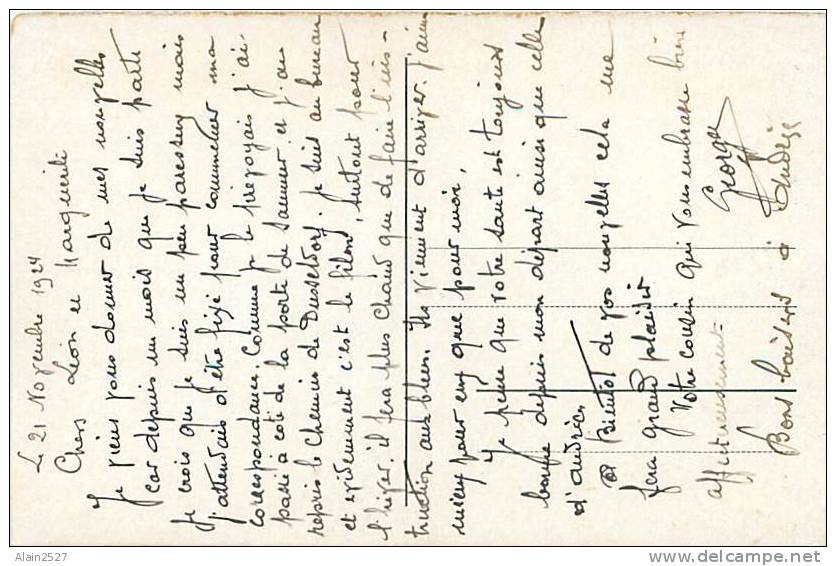 Le 21 Novembre 1924
Chers Léon et Marguerite
Je viens vous donner de mes nouvelles
car depuis un mois que je suis parti
je crois que je suis un peu paresseux mais
j'attendais d'être fixé pour commencer ma
correspondance. Comme je le prévoyais j'ai
passé à coté de la porte de sauveur et j'ai
repris le chemin de Dusseldorf. je suis au bureau
et evidemment c'est le filon, surtout pour
l'hiver. il fera plus chaud que de faire l'ins-
truction aux bleus. Ils viennent d'arriver. j'aime
mieux pour eux que pour moi.
Je pense que votre santé est toujours
bonne depuis mon départ ainsi que celle
d'Andrée,
Bientôt de vos nouvelles cela me
fera grand plaisir
Votre cousin qui vous embrasse bien
affectueusement
Georges
Bons baisers à Andrée
Alain2527
www.delcampe.net